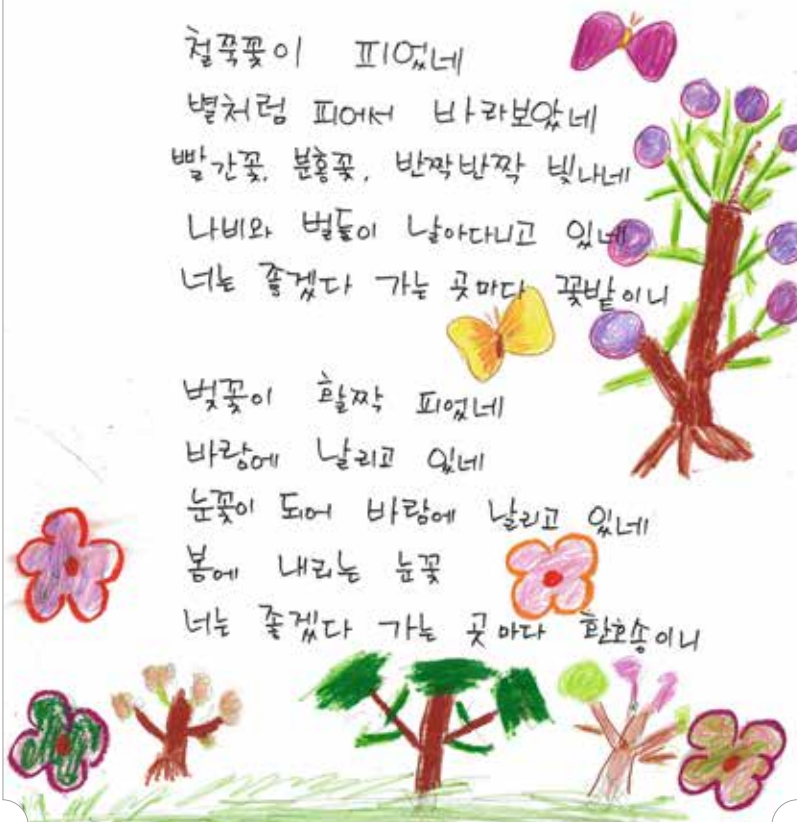 철쭉꽃이 피었네
별처럼 피어서 바라보았네
빨간꽃, 분홍꽃, 반짝반짝 빛나네
나비와 벌들이 날아다니고 있네
너는 좋겠다 가는 곳마다 꽃밭이니
벚꽃이 활짝 피었네
바람에 날리고 있네
눈꽃이 되어 바람에 날리고 있네
봄에 내리는 눈꽃
너는 좋겠다 가는 곳마다 환호송이니